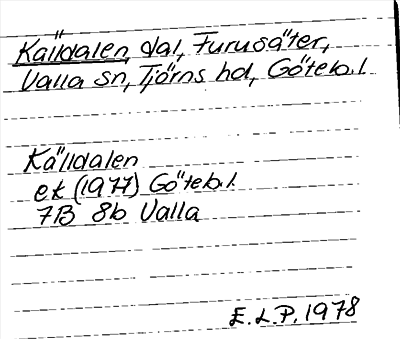 Källdalen, dal, Furusäter,
Valla sn, Tjörns hd, Göteb.l.
Källdalen
ek (1977) Göteb.l.
7B 8b Valla
E.L.P. 1978